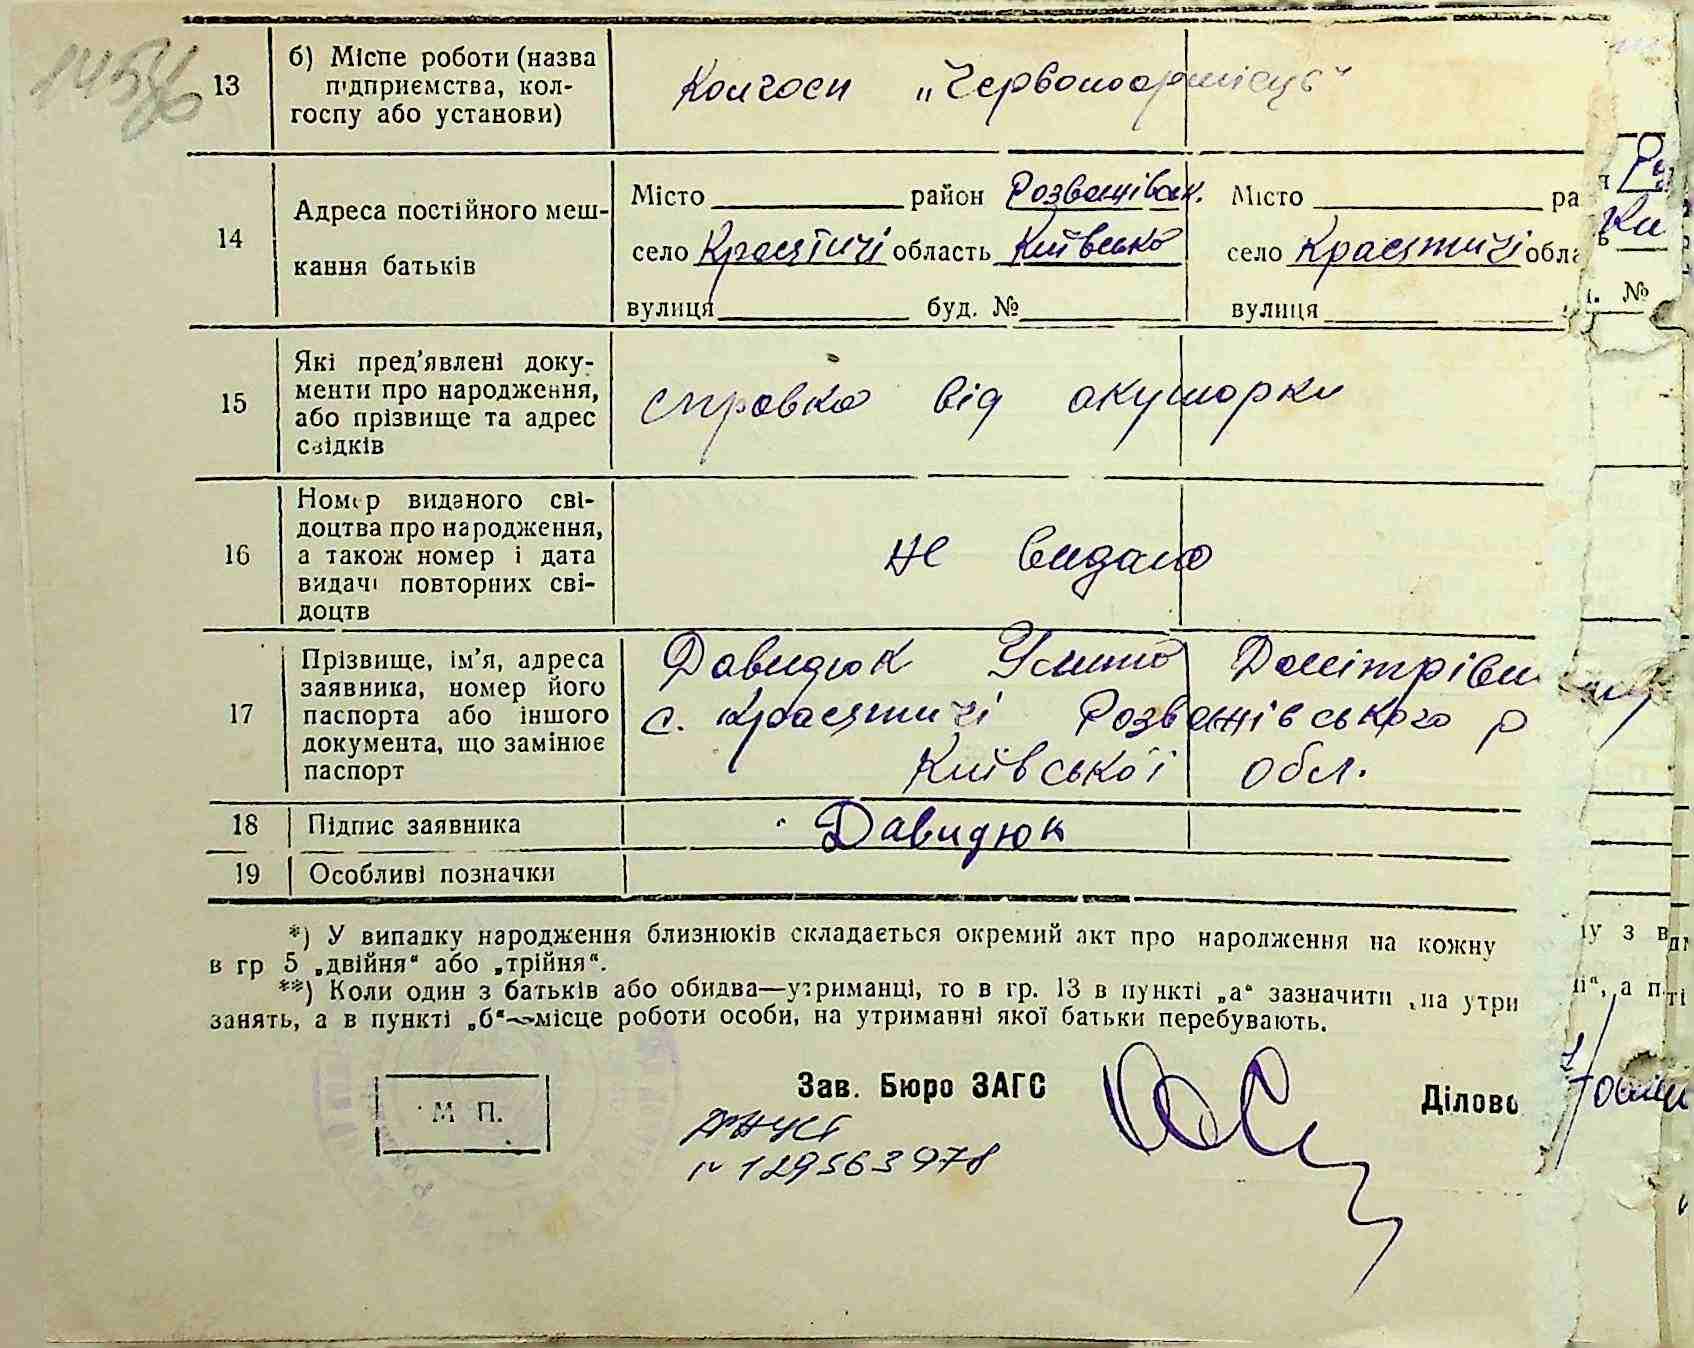 13 б) Місце роботи (назва
підприємства, кол-
госпу або установи)
Колгосп „Червоноармієць"
14 Адреса постійного меш-
кання батьків
Місто район Розважівськ. Місто ра
село Красятичі область Київська село Красятичі обла
вулиця буд. № вулиця
№
15 Які пред'явлені доку-
менти про народження,
або прізвище та адрес
свідків
справка від акушорки
16 Номер виданого сві-
доцтва про народження,
а також номер і дата
видачі повторних сві-
доцтв
не видано
17 Прізвище, ім'я, адреса
заявника, номер його
паспорта або іншого
документа, що замінює
паспорт
Давидюк Дмітрівн
с. Красятичі Розважівського р
Київської обл.
18 Підпис заявника Давидюк
19 Особливі позначки
*) У випадку народження близнюків складається окремий акт про народження на кожну
в гр 5 „двійня“ або „трійня“.
**) Коли один з батьків або обидва—утриманці, то в гр. 13 в пункті „а“ зазначити „на утри
занять, а в пункті „б“—місце роботи особи, на утриманні якої батьки перебувають.
М П.
Зав. Бюро ЗАГС
Ділово
№ 129563978